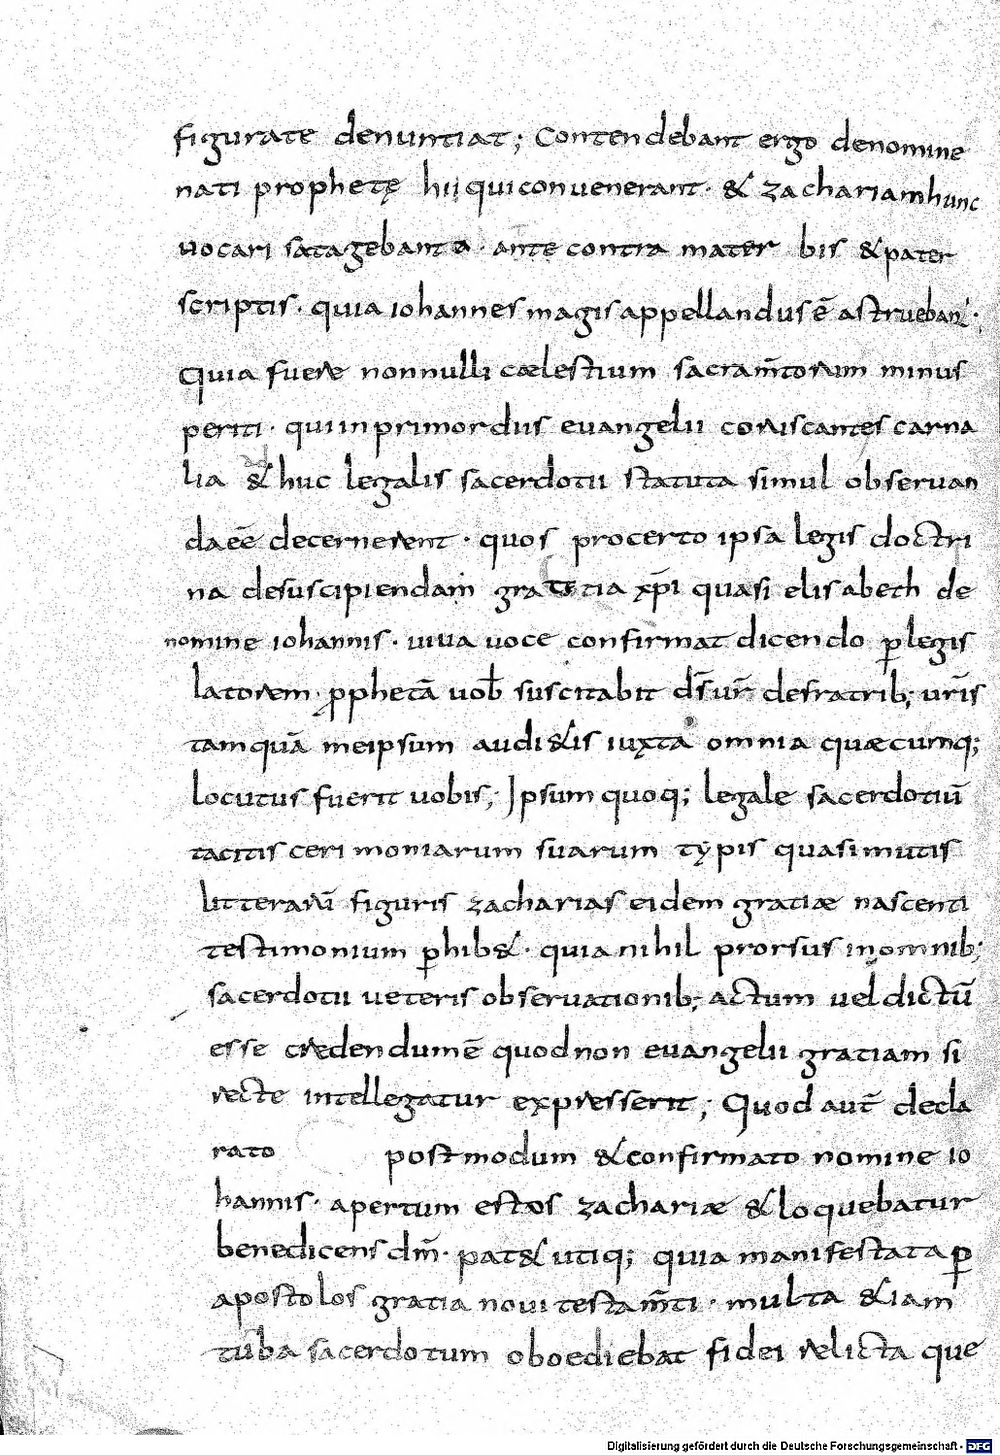 figurate denuntiat; Contendebant ergo denomine
nati prophetę hii qui conuenerant · & zachariam hunc
uocari satagebant · ante contra mater bis & pater
scriptis · quia iohannes magis appellandus ē astruebant ·
Quia fuere nonnulli cælestium sacram̄torum minus
periti · qui in primordiis euangelii coruscantes carna
lia & huc legalis sacerdotii statuta simul obseruan
da eē decernerent · quos procerto ipsa legis doctri
na desuscipiendam gratia xp̄i quasi elisabeth de
nomine iohannis · uiua uoce confirmat dicendo ꝑ legis
latorem ꝓphetā uob̄ suscitabit d̄s ur̄ defratrib; ur̄is
tamquā meipsum audi&is iuxta omnia quæcumq;
locutus fuerit uobis; Ipsum quoq; legale sacerdotiū
tacitis ceri moniarum suarum typis quasi mutis
litterarū figuris zacharias eidem gratiæ nascenti
testimonium ꝑhib& · quia nihil prorsus in omnib;
sacerdotii ueteris obseruationib; actum uel dictū
esse credendum ē quod non euangelii gratiam si
recte intellegatur expresserit; Quod aut̄ decla
rato postmodum & confirmato nomine io
hannis · apertum est os zachariæ & loquebatur
benedicens dm̄ · pat& utiq; quia manifestata ꝑ
apostolos gratia noui testam̄ti · multa &iam
tuba sacerdotum oboediebat fidei relicta que
Digitalisierung gefördert durch die Deutsche Forschungsgemeinschaft - DFG